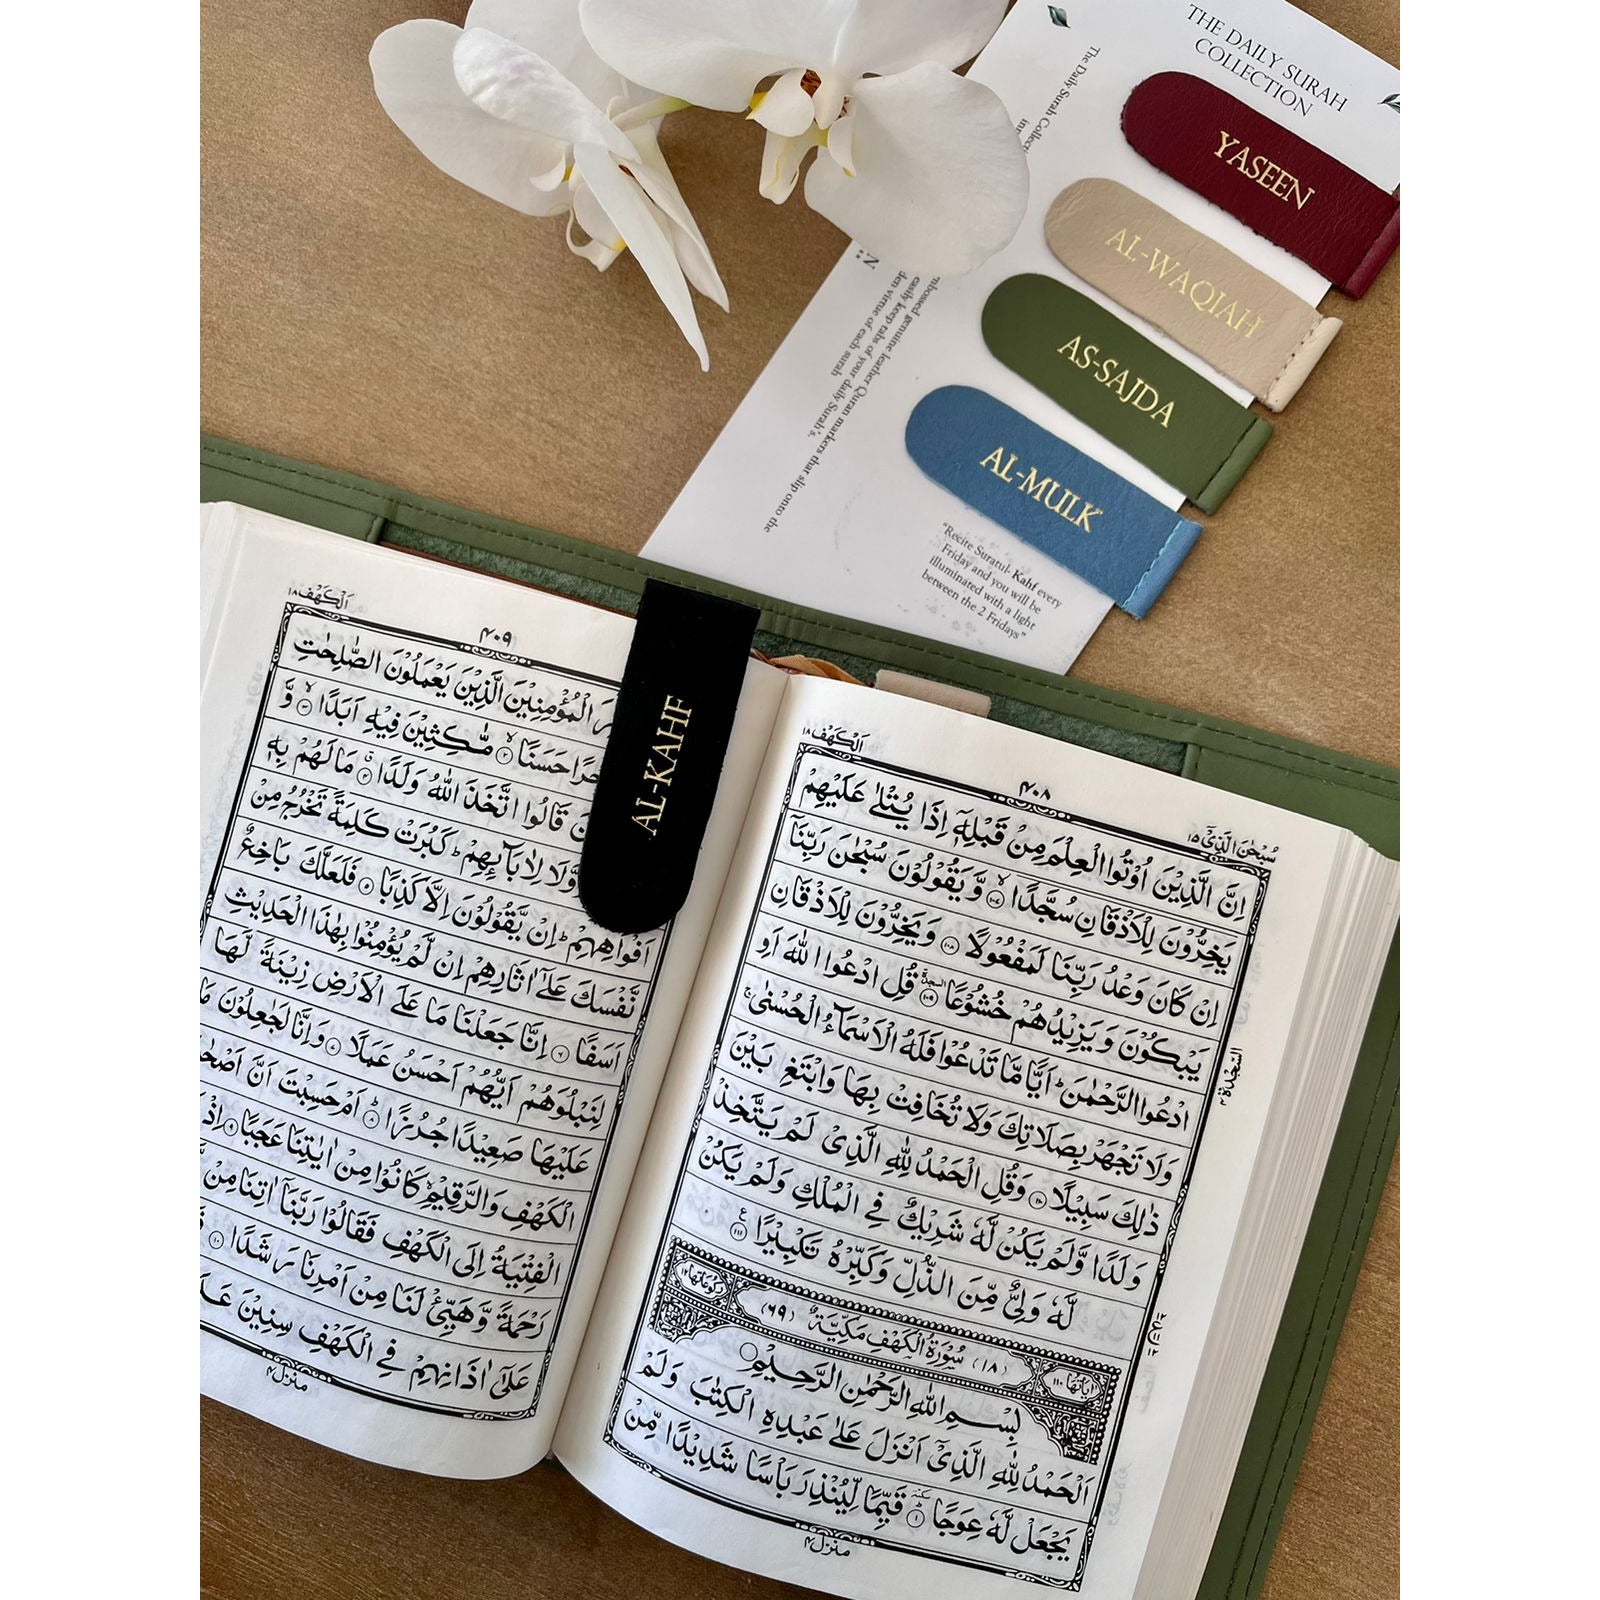 THE DAILY SURAH
COLLECTION
YASEEN
AL-WAQIAH
AS-SAJDA
AL-MULK
The Daily Surah Collecti
mbossed genuine leather Quran markers that slip onto the
easily keep tabs of your daily Surah's,
den virtue of each surah
"Recite Suratul- Kahf every
Friday and you will be
illuminated with a light
between the 2 Fridays"
AL-KAHF
اَلْكَهْف ١٨
٤٠٨
سُبْحٰنَ الَّذِيْٓ ١٥
اِنَّ الَّذِيْنَ اُوْتُوا الْعِلْمَ مِنْ قَبْلِهٖٓ اِذَا يُتْلٰى عَلَيْهِمْ
يَخِرُّوْنَ لِلْاَذْقَانِ سُجَّدًا ۙ‏ ١٠٧ وَّ يَقُوْلُوْنَ سُبْحٰنَ رَبِّنَاۤ
اِنْ كَانَ وَعْدُ رَبِّنَا لَمَفْعُوْلًا ١٠٨ وَيَخِرُّوْنَ لِلْاَذْقَانِ
يَبْكُوْنَ وَ يَزِيْدُهُمْ خُشُوْعًا ١٠٩ السجدة قُلِ ادْعُوا اللّٰهَ اَوِ
ادْعُوا الرَّحْمٰنَ ؕ اَيًّا مَّا تَدْعُوْا فَلَهُ الْاَسْمَآءُ الْحُسْنٰى ۚ
وَلَا تَجْهَرْ بِصَلَاتِكَ وَلَا تُخَافِتْ بِهَا وَابْتَغِ بَيْنَ
ذٰلِكَ سَبِيْلًا ١١٠ وَقُلِ الْحَمْدُ لِلّٰهِ الَّذِيْ لَمْ يَتَّخِذْ
وَلَدًا وَّلَمْ يَكُنْ لَّهٗ شَرِيْكٌ فِي الْمُلْكِ وَلَمْ يَكُنْ
لَّهٗ وَلِيٌّ مِّنَ الذُّلِّ وَكَبِّرْهُ تَكْبِيْرًا ١١١ ع
اٰيَاتُهَا ١١٠ (١٨) سُوْرَةُ الْكَهْفِ مَكِّيَّةٌ (٦٩) رُكُوْعَاتُهَا ١٢
بِسْمِ اللّٰهِ الرَّحْمٰنِ الرَّحِيْمِ
اَلْحَمْدُ لِلّٰهِ الَّذِيْٓ اَنْزَلَ عَلٰى عَبْدِهِ الْكِتٰبَ وَلَمْ
يَجْعَلْ لَّهٗ عِوَجًا ١ قَيِّمًا لِّيُنْذِرَ بَاْسًا شَدِيْدًا مِّنْ
منزل ٤
السجدة ٤
اَلْكَهْف ١٨
٤٠٩
الْمُؤْمِنِيْنَ الَّذِيْنَ يَعْمَلُوْنَ الصّٰلِحٰتِ
حَسَنًا ٢ مّٰكِثِيْنَ فِيْهِ اَبَدًا ٣ وَّ
قَالُوا اتَّخَذَ اللّٰهُ وَلَدًا ٤ مَا لَهُمْ بِهٖ
وَّلَا لِاٰبَآئِهِمْ ؕ كَبُرَتْ كَلِمَةً تَخْرُجُ مِنْ
اَفْوَاهِهِمْ ؕ اِنْ يَّقُوْلُوْنَ اِلَّا كَذِبًا ٥ فَلَعَلَّكَ بَاخِعٌ
نَّفْسَكَ عَلٰٓى اٰثَارِهِمْ اِنْ لَّمْ يُؤْمِنُوْا بِهٰذَا الْحَدِيْثِ
اَسَفًا ٦ اِنَّا جَعَلْنَا مَا عَلَى الْاَرْضِ زِيْنَةً لَّهَا
لِنَبْلُوَهُمْ اَيُّهُمْ اَحْسَنُ عَمَلًا ٧ وَاِنَّا لَجٰعِلُوْنَ مَا
عَلَيْهَا صَعِيْدًا جُرُزًا ٨ اَمْ حَسِبْتَ اَنَّ
الْكَهْفِ وَالرَّقِيْمِ كَانُوْا مِنْ اٰيٰتِنَا عَجَبًا ٩ اِذْ
الْفِتْيَةُ اِلَى الْكَهْفِ فَقَالُوْا رَبَّنَآ اٰتِنَا مِنْ
رَحْمَةً وَّهَيِّئْ لَنَا مِنْ اَمْرِنَا رَشَدًا ١٠
عَلٰٓى اٰذَانِهِمْ فِي الْكَهْفِ سِنِيْنَ
منزل ٤